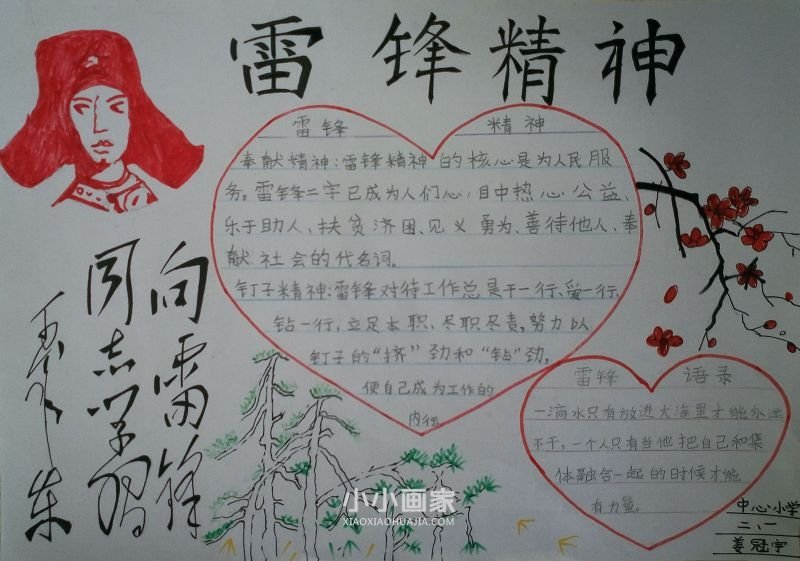 雷锋精神
雷锋 精神
奉献精神:雷锋精神的核心是为人民服
务。雷锋二字已成为人们心目中热心公益、
乐于助人、扶贫济困、见义勇为、善待他人、奉
献社会的代名词。
钉子精神:雷锋对待工作总是干一行、爱一行、
钻一行,立足本职、尽职尽责,努力以
钉子的“挤”劲和“钻”劲,
使自己成为工作的
内行。
向雷锋
同志学习
毛泽东
雷锋 语录
一滴水只有放进大海里才能永远
不干,一个人只有当他把自己和集
体融合一起的时候才能
有力量。
中心小学
二、一
姜冠宇
小小画家
XIAOXIAOHUAJIA.COM